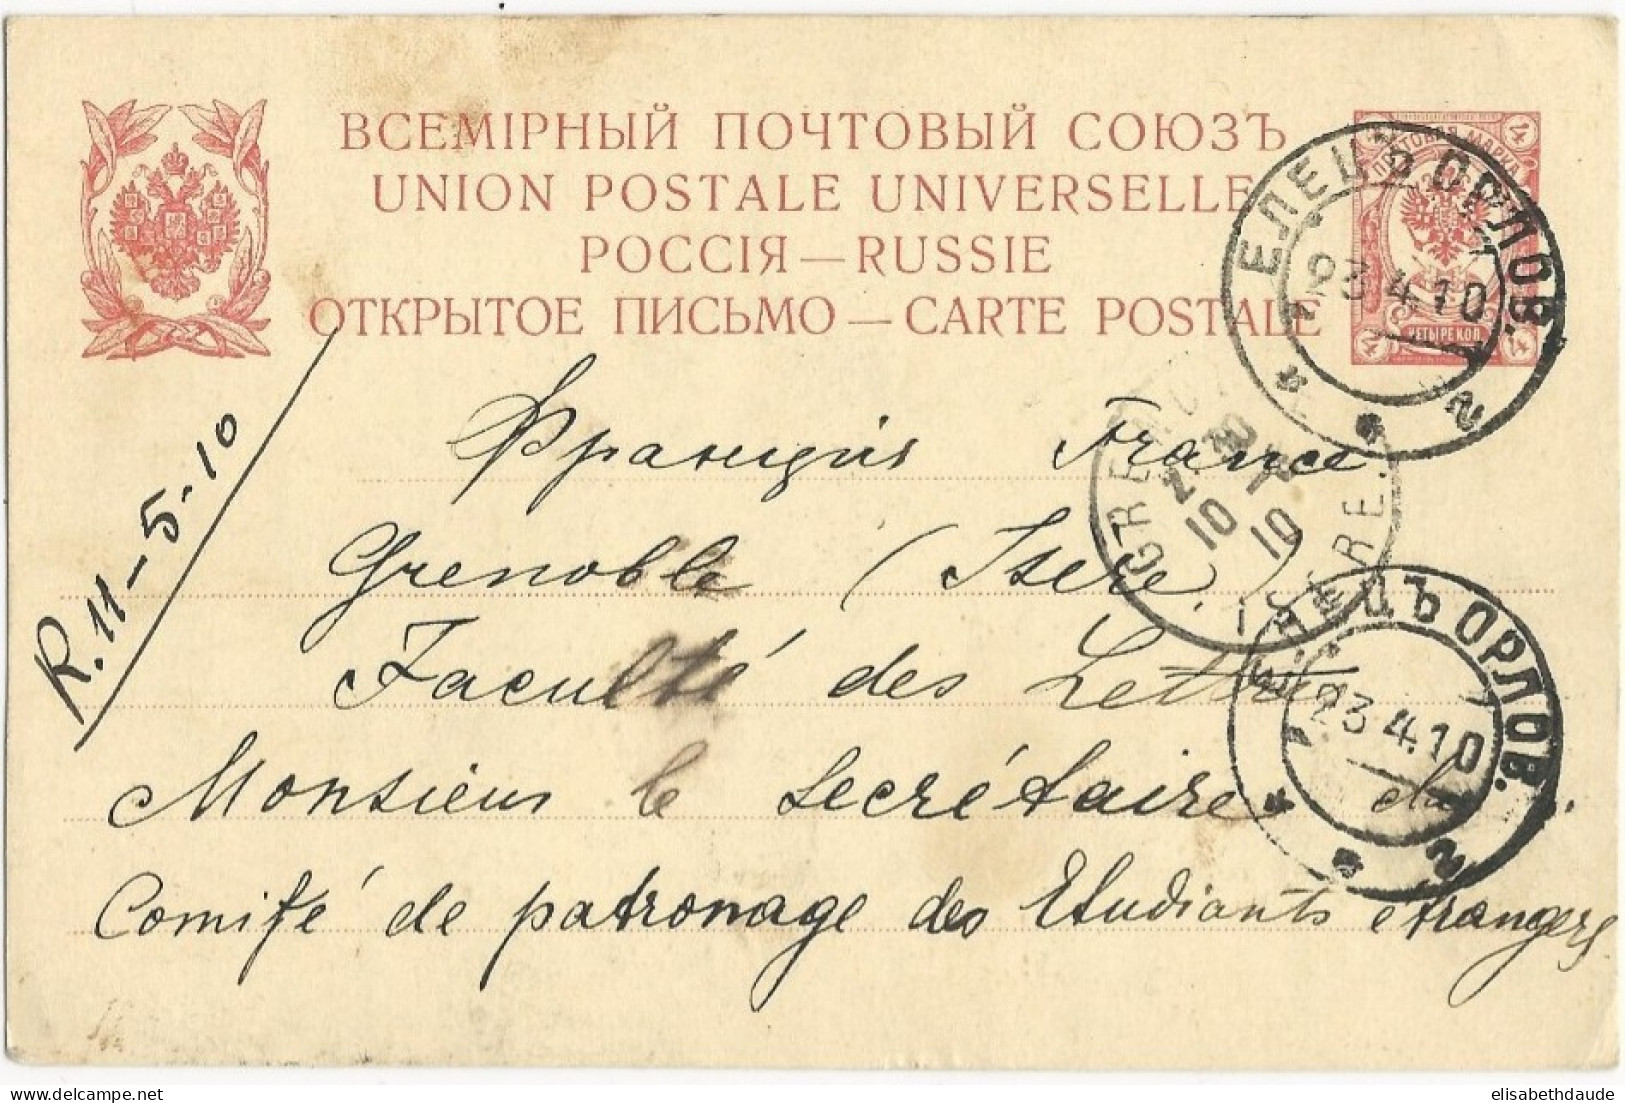 ВСЕМІРНЫЙ ПОЧТОВЫЙ СОЮЗЪ
UNION POSTALE UNIVERSELLE
РОССІЯ — RUSSIE
ОТКРЫТОЕ ПИСЬМО — CARTE POSTALE
4 ПОЧТОВАЯ МАРКА 4
4 ЧЕТЫРЕ КОП. 4
ЕЛЕЦЪ ОРЛОВ.
23 4 10
2
R. 11-5-10
Франція France
Grenoble (Isère.)
Faculté des Lettres
Monsieur le Secrétaire du
Comité de patronage des Etudiants étrangers
GRENOBLE
10 10
ISERE.
ЕЛЕЦЪ ОРЛОВ.
23 4.10
2
elisabethdaude